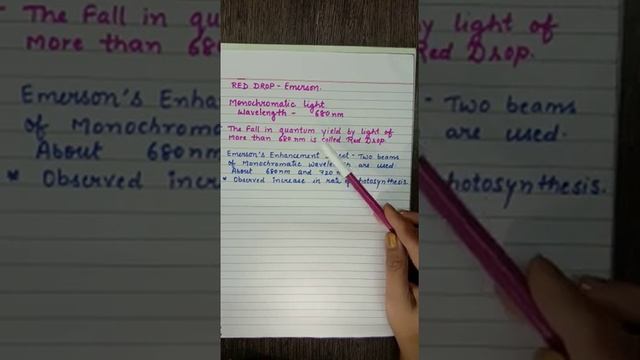 RED DROP - Emerson.
Monochromatic light
Wavelength - 680nm
The Fall in quantum yield by light of
More than 680 nm is called Red Drop.
Emerson's Enhancement - Two beams
of Monochromatic are used.
About 680nm and 720
* Observed increase in Photosynthesis.